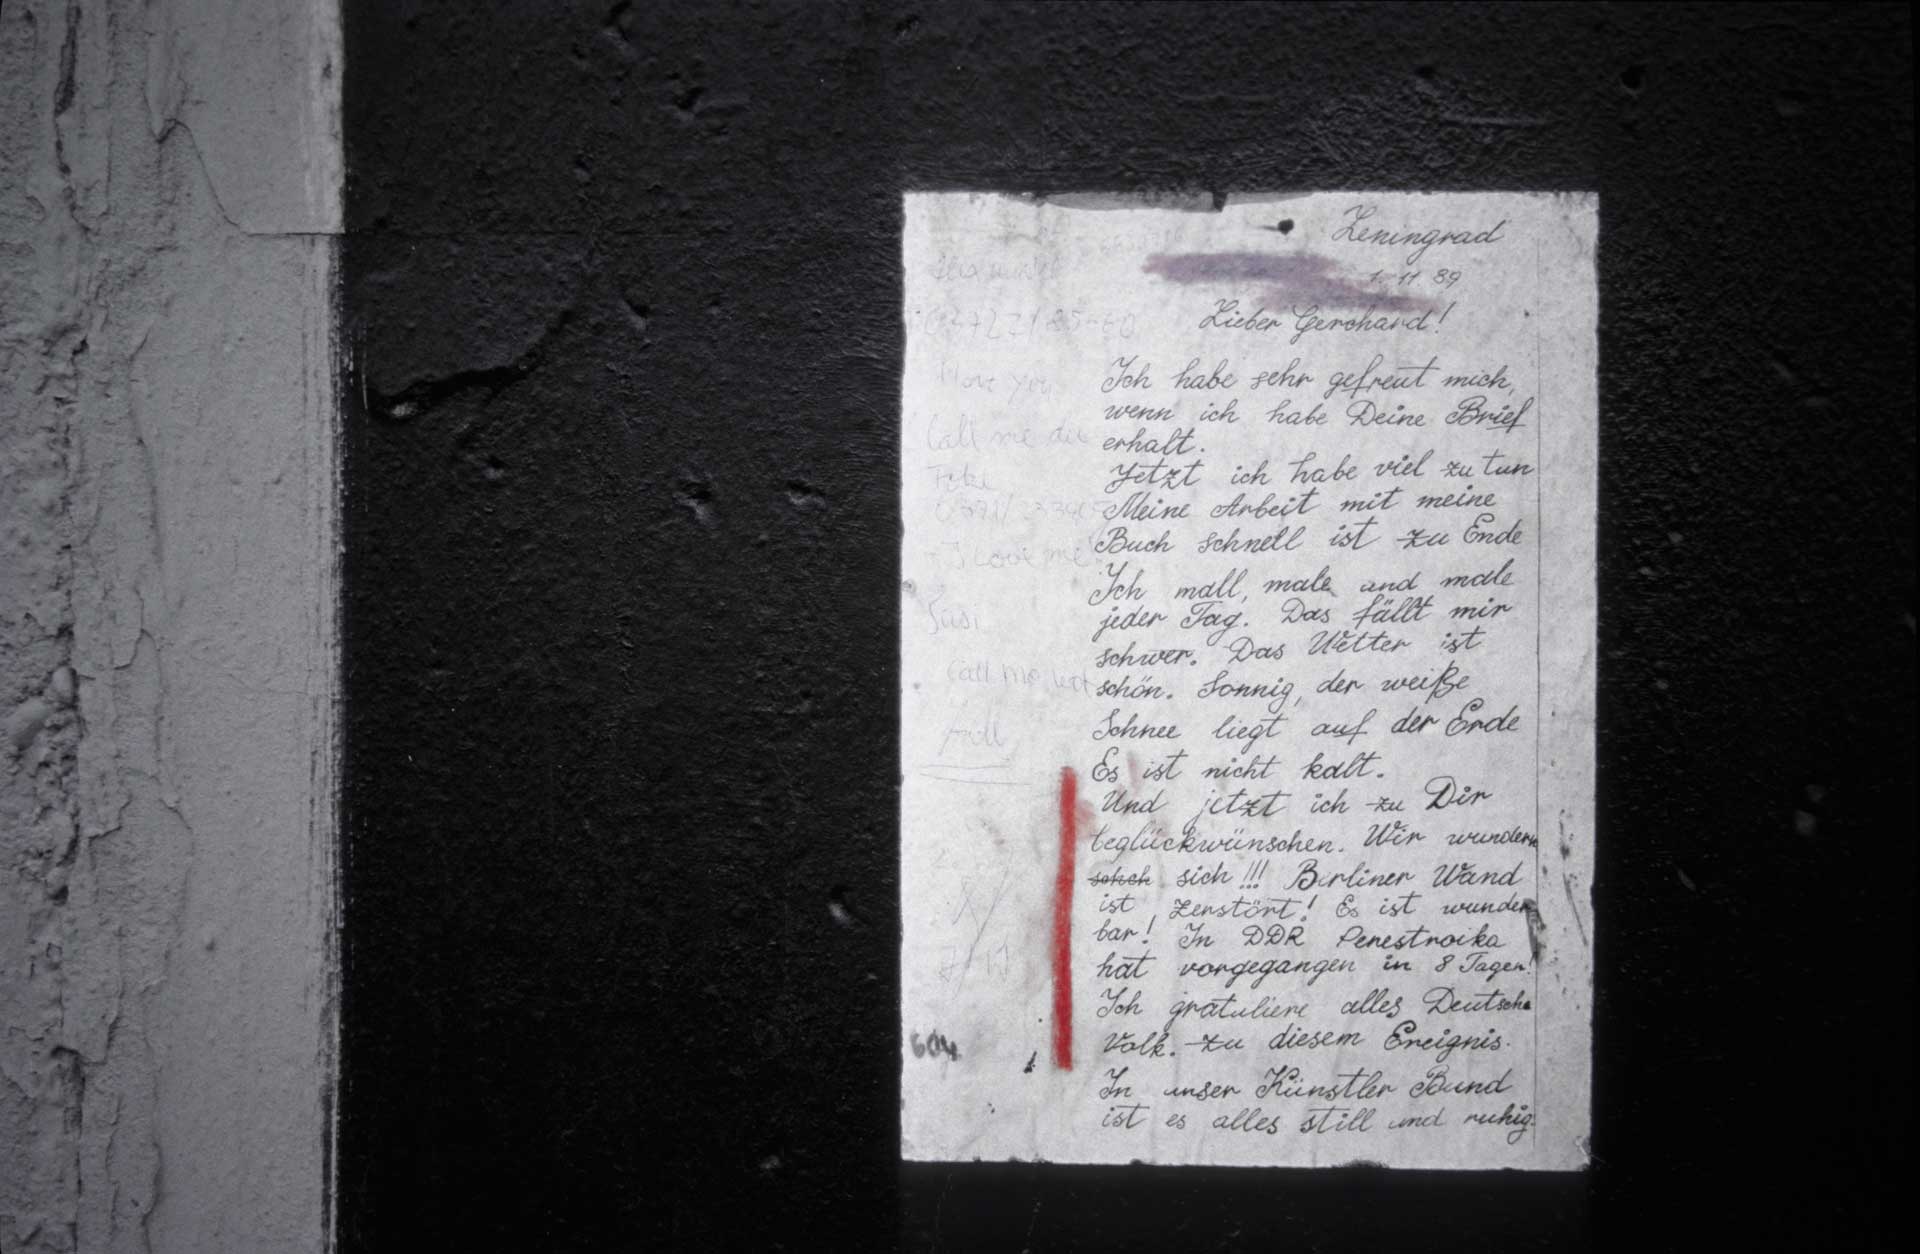 Leningrad
1. 11 89
Lieber Gerchard!
Ich habe sehr gefreut mich,
wenn ich habe Deine Brief
erhalt.
Jetzt ich habe viel zu tun
Meine Arbeit mit meine
Buch schnell ist zu Ende
Ich mall, male und male
jeder Tag. Das fällt mir
schwer. Das Wetter ist
schön. Sonnig, der weiße
Schnee liegt auf der Erde
Es ist nicht kalt.
Und jetzt ich zu Dir
beglückwünschen. Wir wundern
sich!!! Berliner Wand
ist zerstört! Es ist wunder
bar! In DDR Perestroika
hat vorgegangen in 8 Tagen!
Ich gratuliere alles Deutsche
Volk. zu diesem Ereignis.
In unser Künstler Bund
ist es alles still und ruhig.
I love you
Call me
I love me
Susi
Call me
604